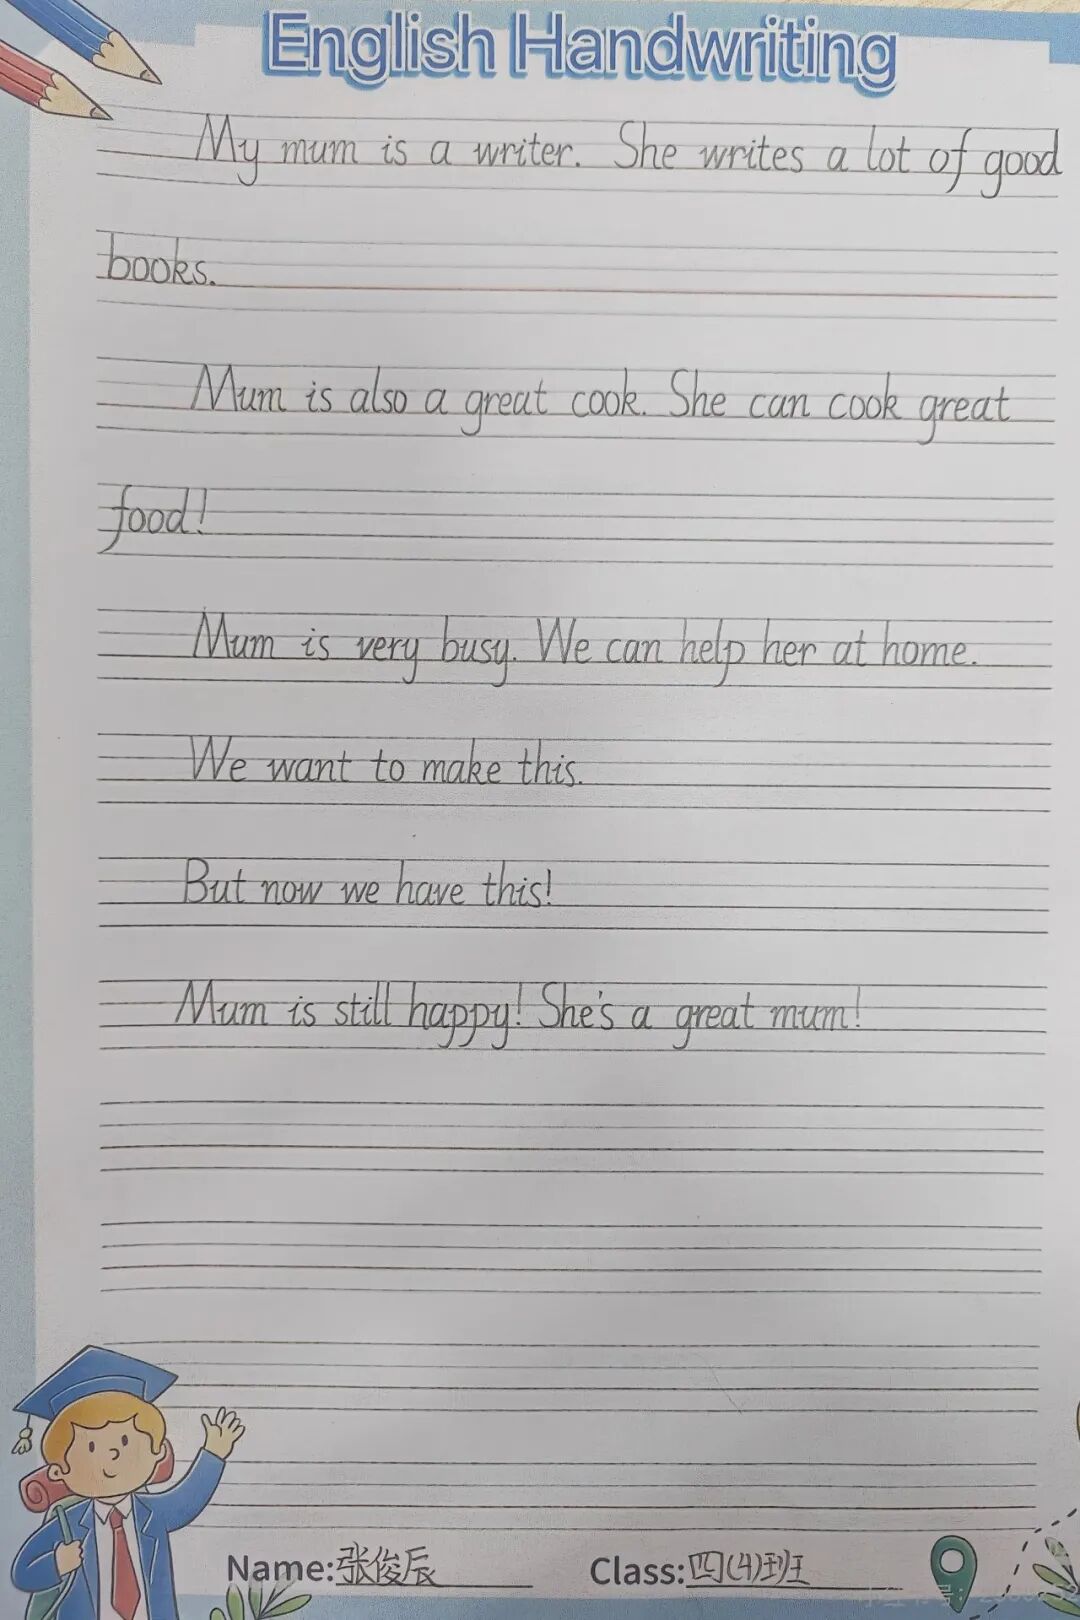 English Handwriting
My mum is a writer. She writes a lot of good
books.
Mum is also a great cook. She can cook great
food!
Mum is very busy. We can help her at home.
We want to make this.
But now we have this!
Mum is still happy! She's a great mum!
Name:张俊辰 Class:四(4)班